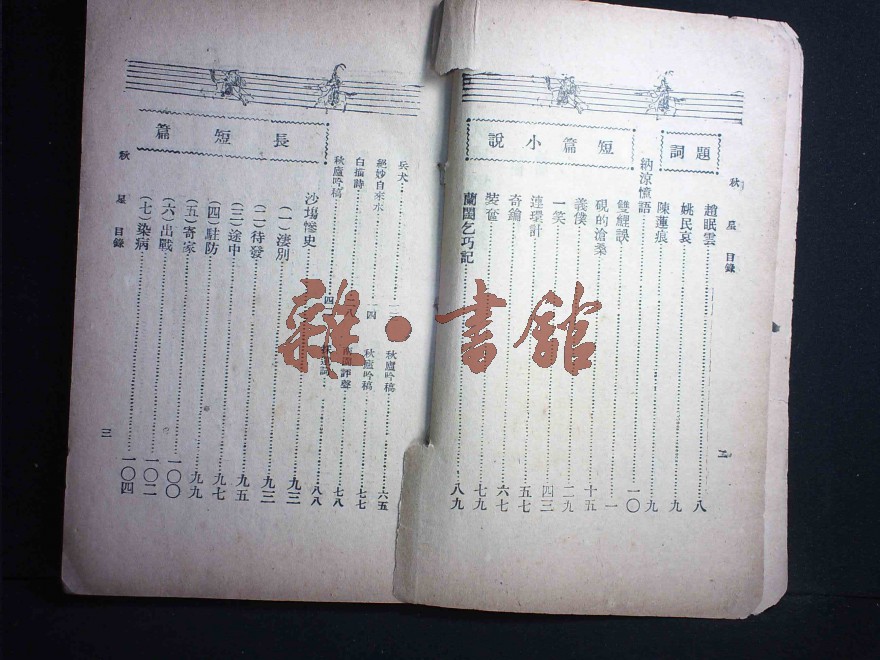 秋星 目錄
二
題詞
趙眠雲 八
姚民哀 九
陳蓮痕 九
納涼憶語 一〇
短篇小說
雙鯉誤 一
硯的滄桑 十五
義僕 二九
一笑 四三
連環計 五七
奇鑰 六七
裝奩 七九
蘭閨乞巧記 八九
兵犬 二 秋廬吟稿 六五
絕妙自來水 四 秋廬吟稿 七七
白描詩 七八
秋廬吟稿 四 八八
長短篇
沙塲慘史 九三
(一)淒別 九三
(二)待發 九五
(三)途中 九七
(四)駐防 九九
(五)寄家 一〇〇
(六)出戰 一〇二
(七)染病 一〇四
秋星 目錄
三
雜·書館